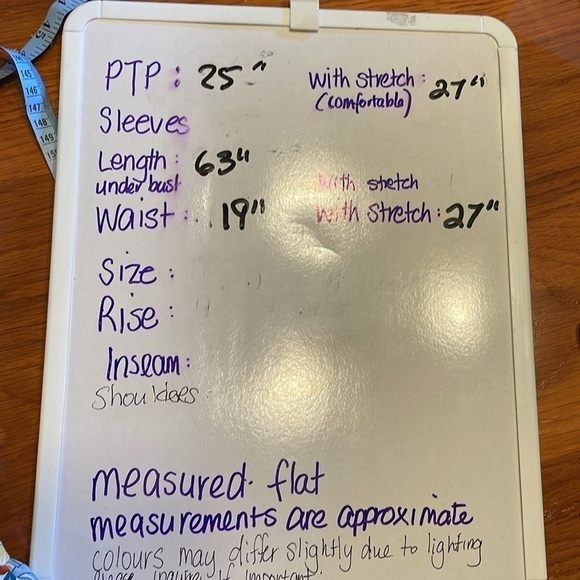 PTP : 25" with stretch : 27"
(comfortable)
Sleeves
Length : 63"
under bust with stretch
Waist : 19" with stretch : 27"
Size :
Rise :
Inseam :
Shoulders :
measured flat
measurements are approximate
colours may differ slightly due to lighting
please inquire if important.
145
146
147
148
149